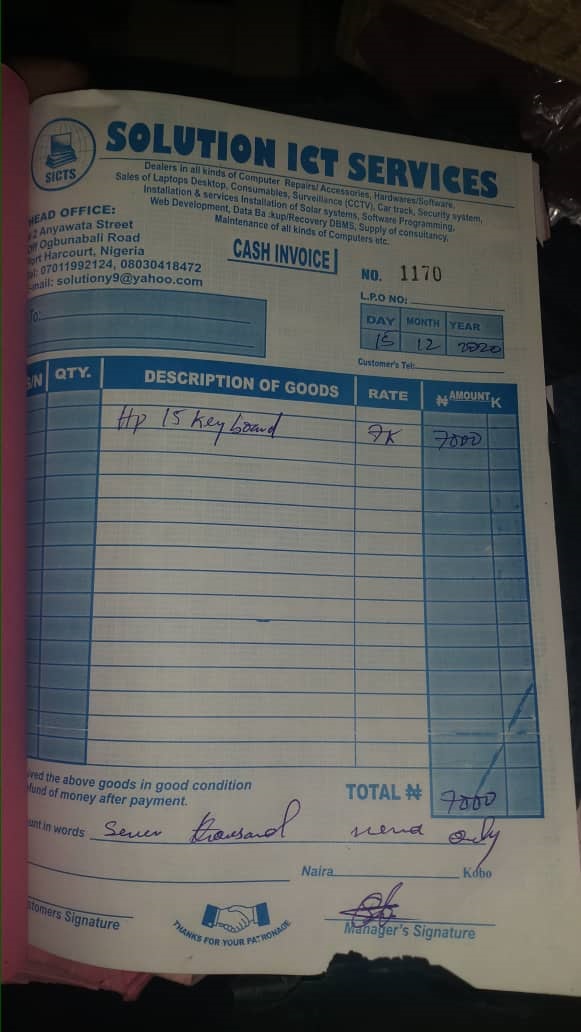 SOLUTION ICT SERVICES
SICTS
Dealers in all kinds of Computer Repairs/ Accessories, Hardwares/Software,
Sales of Laptops Desktop, Consumables, Surveillance (CCTV), Car track, Security system,
Installation & services Installation of Solar systems, Software Programming,
Web Development, Data Ba :kup/Recovery DBMS, Supply of consultancy,
Maintenance of all kinds of Computers etc.
HEAD OFFICE:
2 Anyawata Street
Ogbunabali Road
ort Harcourt, Nigeria
el: 07011992124, 08030418472
-mail: solutiony9@yahoo.com
CASH INVOICE
NO. 1170
L.P.O NO:
To:
DAY MONTH YEAR
15 12 2020
Customer's Tel:
S/N QTY. DESCRIPTION OF GOODS RATE ₦ AMOUNT K
Hp 15 keyboard 7K 7000
ved the above goods in good condition
fund of money after payment.
TOTAL ₦ 7000
unt in words Seven thousand only
Naira Kobo
stomers Signature
THANKS FOR YOUR PATRONAGE
Manager's Signature